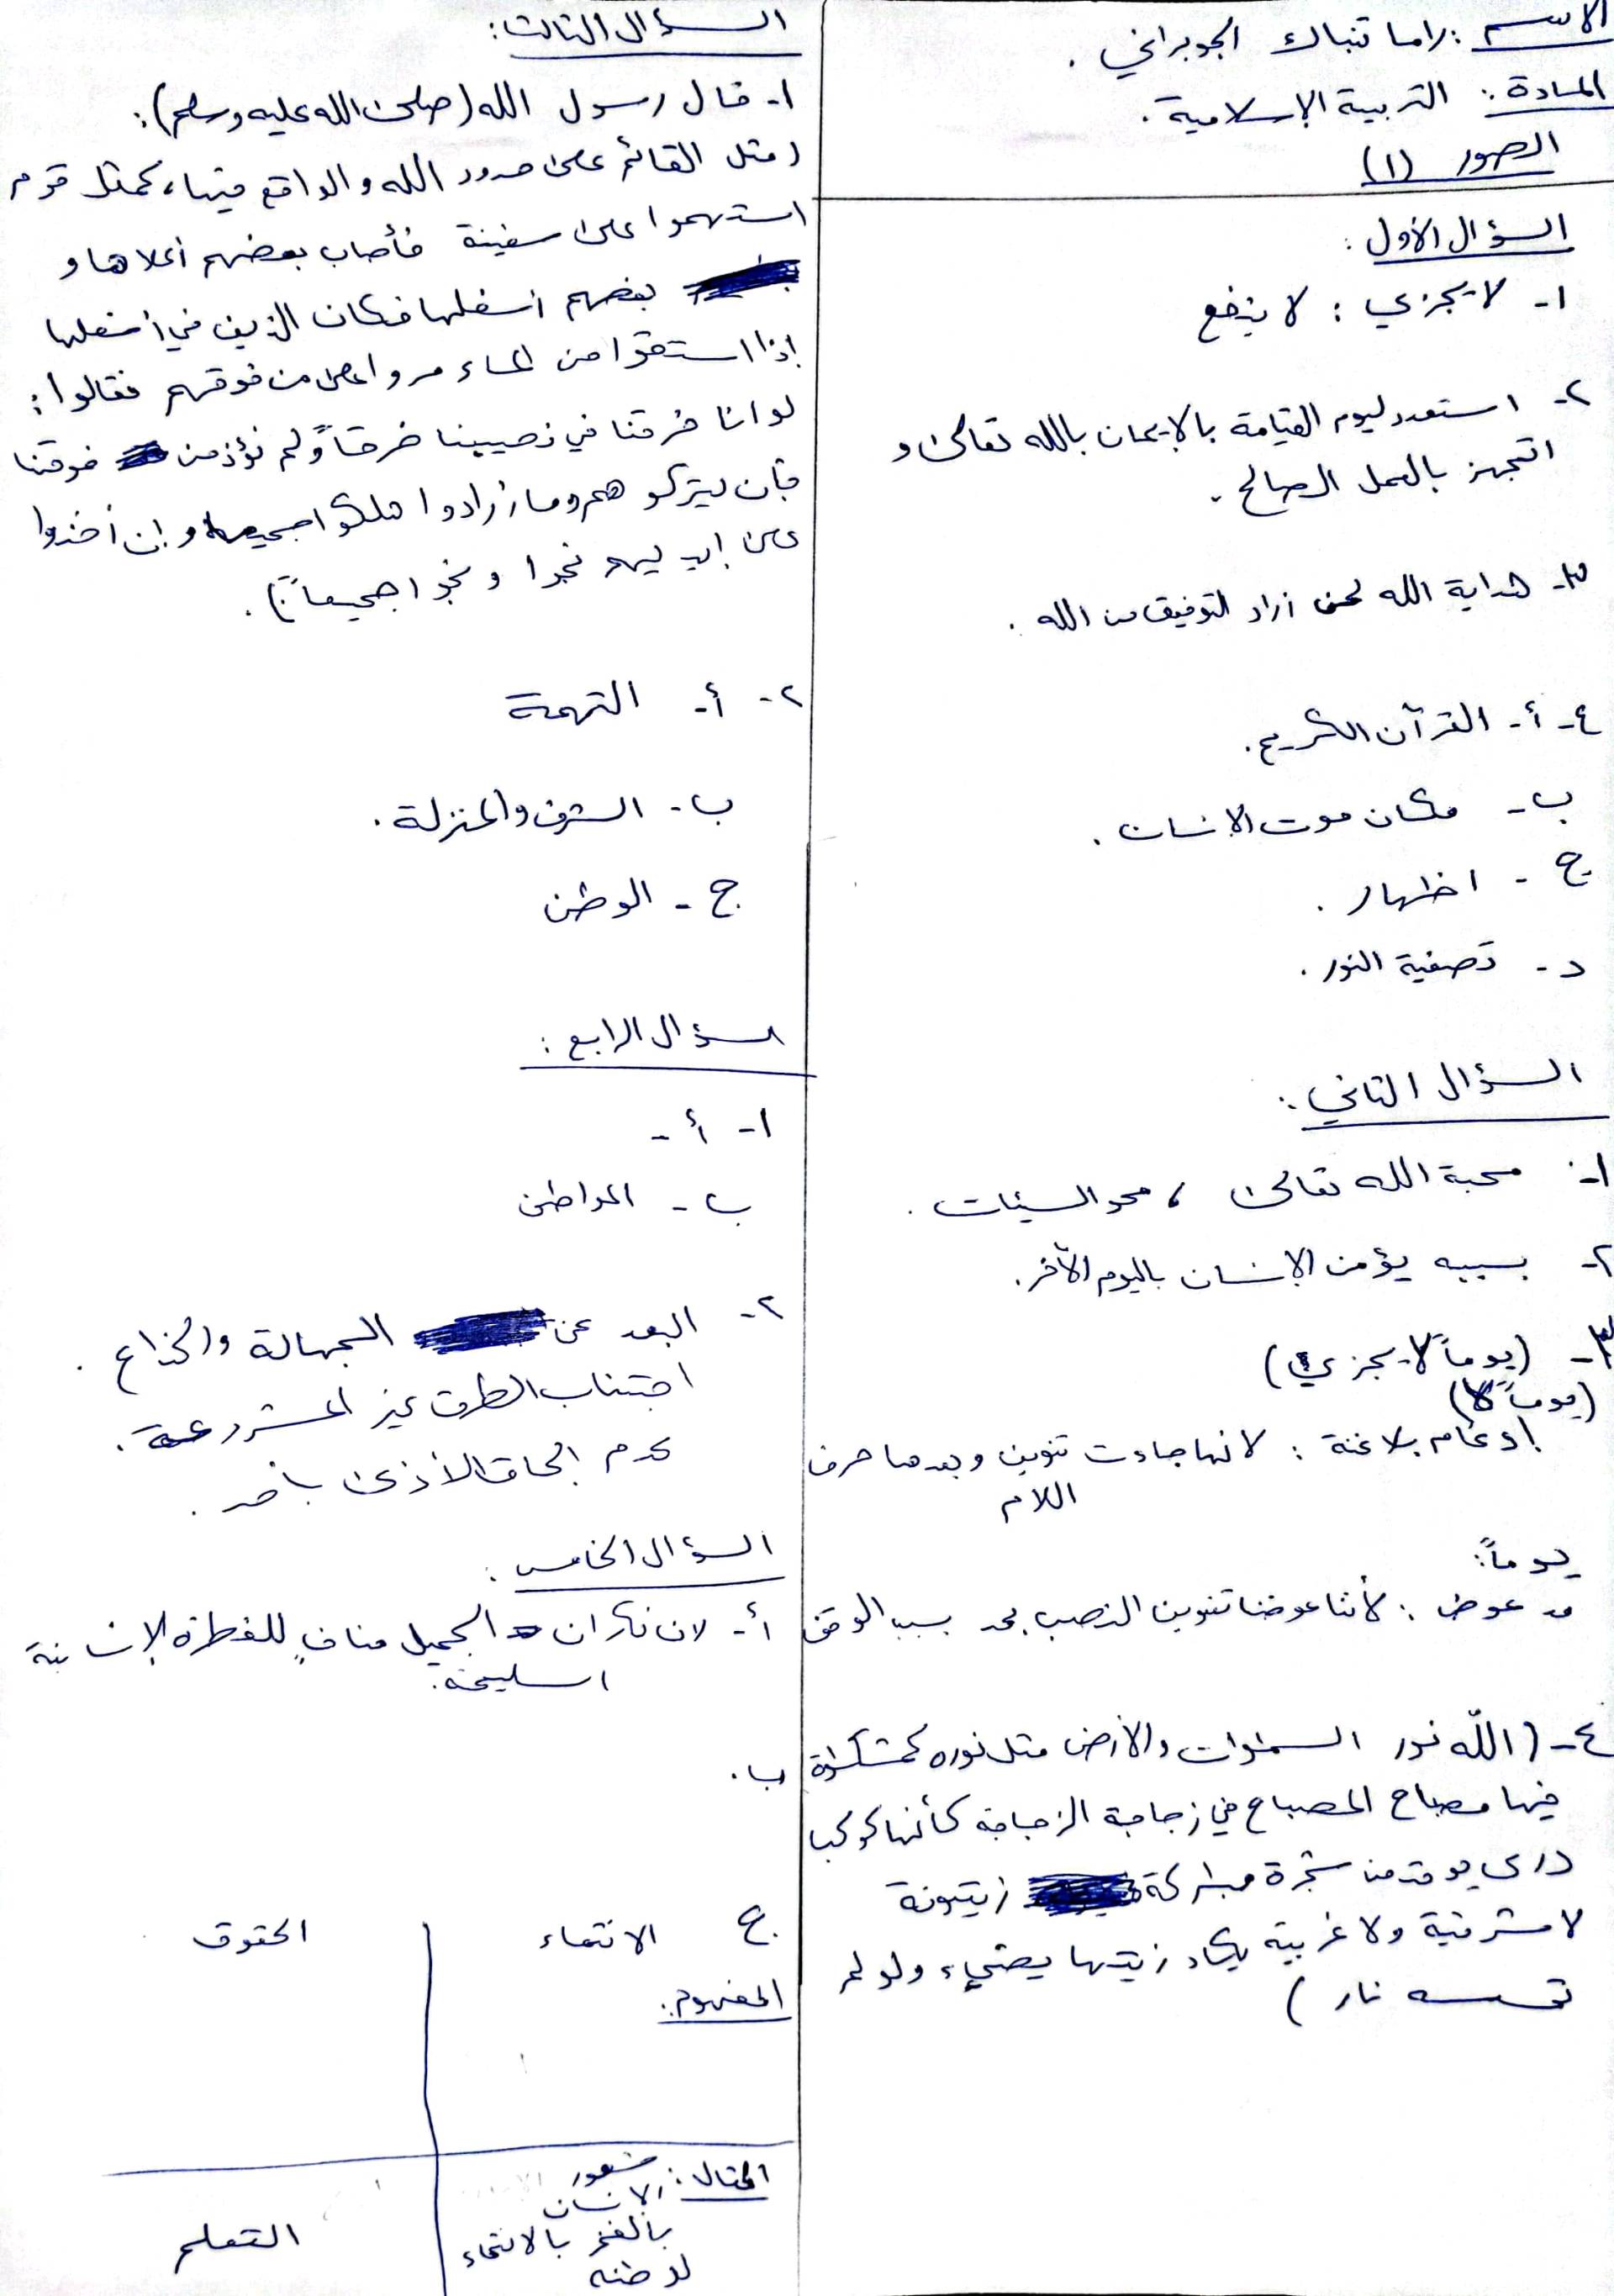 الاسم : راما تنباك الجوبراني .
المادة : التربية الإسلامية .
الصور (١)
السؤال الأول :
١- لا يجزي : لا ينفع
٢- استعد ليوم القيامة بالايمان بالله تعالى و
اتجهز بالعمل الصالح .
٣- هداية الله لمن أراد التوفيق من الله .
٤- أ- القرآن الكريم .
ب- مكان موت الانسان .
ج- اظهار .
د- تصفية النور .
السؤال الثاني :
١- محبة الله تعالى ، محو السيئات .
٢- بسببه يؤمن الإنسان باليوم الآخر .
٣- (يوماً لا يجزي)
(يوماً لا)
إدغام بلا غنة : لانها جاءت تنوين وبعدها حرف
اللام
يوماً :
مد عوض : لأننا عوضنا تنوين النصب بمد بسبب الوقف
٤- (اللّه نور السموات والأرض مثل نوره كمشكوة
فيها مصباح المصباح في زجاجة الزجاجة كأنها كوكب
درى يوقد من شجرة مباركة زيتونة
لا شرقية ولا غربية يكاد زيتها يضيء ولو لم
تمسسه نار )
السؤال الثالث :
١- قال رسول الله (صلى الله عليه وسلم) :
( مثل القائم على حدود الله والواقع فيها، كمثل قوم
استهموا على سفينة فأصاب بعضهم أعلاها و
بعضهم أسفلها فكان الذين في أسفلها
إذا استقوا من الماء مروا على من فوقهم فقالوا :
لو انا خرقنا في نصيبنا خرقاً ولم نؤذ من فوقنا
فإن يتركو هم وما أرادوا هلكوا جميعا وإن أخذوا
على إيديهم نجوا ونجوا جميعاً ) .
٢- أ- التهمة
ب- الشرف والمنزلة .
ج- الوطن
السؤال الرابع :
١- أ-
ب- المواطن
٢- البعد عن الجهالة والخداع .
اجتناب الطرق غير المشروعة .
عدم الحاق الأذى بأحد .
السؤال الخامس :
أ- لان نكران الجميل منافٍ للفطرة الإنسانية
السليمة .
ب.
ج الانتماء الحقوق
المفهوم :
المثال : شعور
الانسان
بالفخر بالانتماء
لوطنه
التعلم